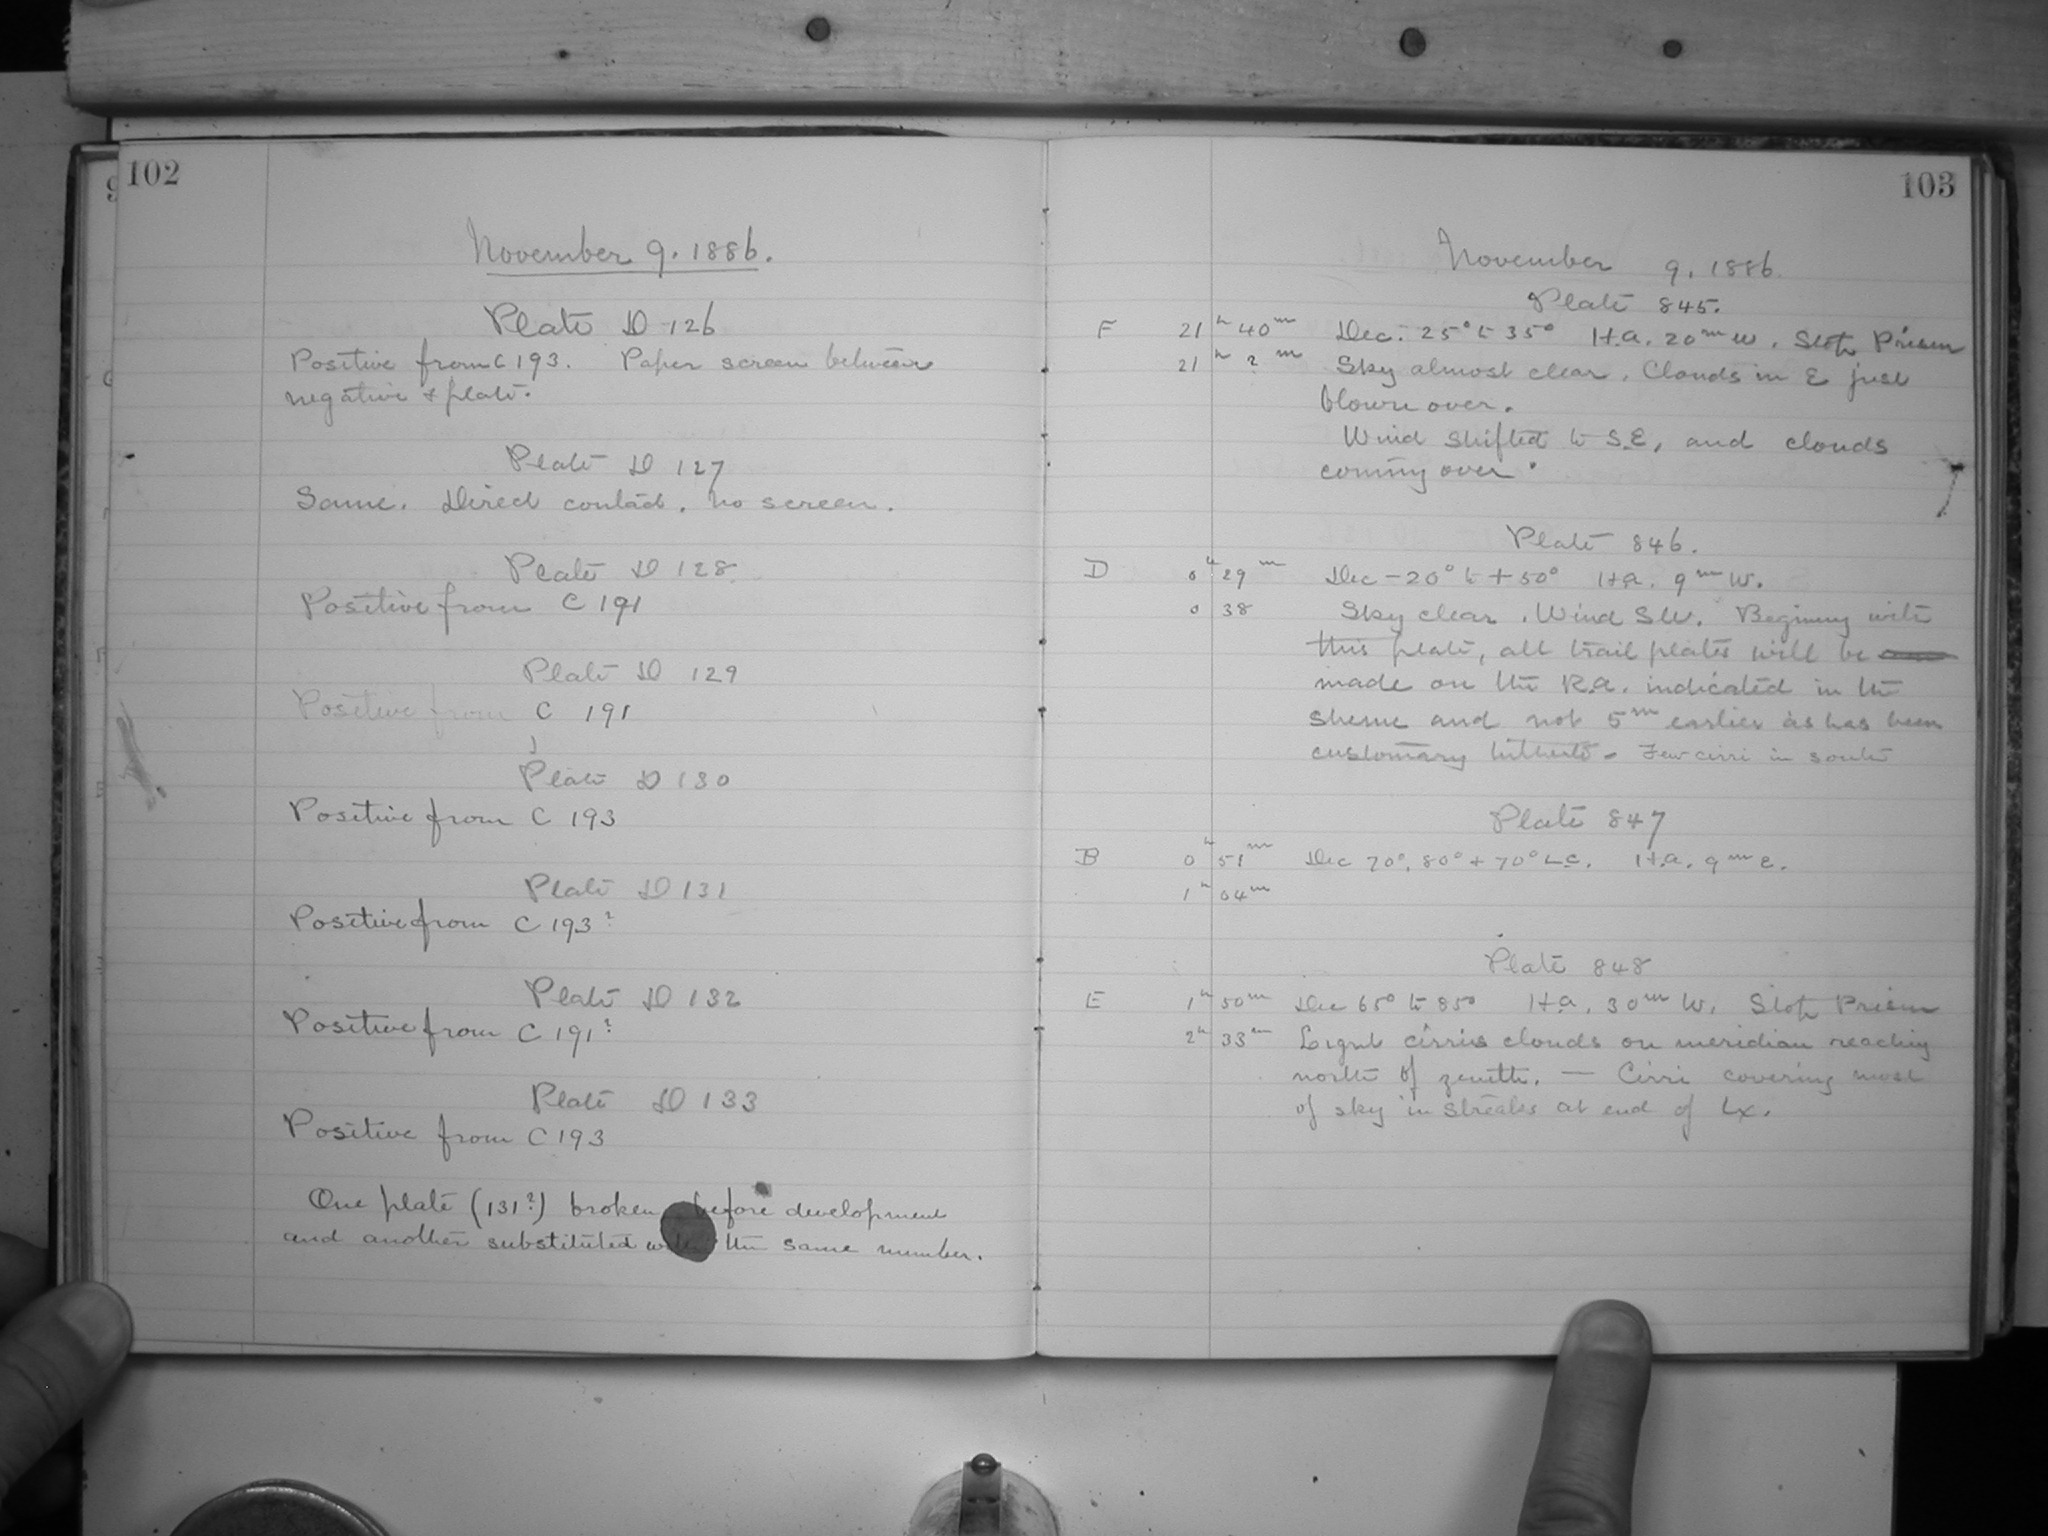 102
November 9. 1886.
Plate D 126
Positive from C 193. Paper screen between
negative & plate.
Plate D 127
Same. Direct contact, no screen.
Plate D 128
Positive from C 191
Plate D 129
Positive from C 191
Plate D 130
Positive from C 193
Plate D 131
Positive from C 193?
Plate D 132
Positive from C 191?
Plate D 133
Positive from C 193
One plate (131?) broken before development
and another substituted with the same number.
103
November 9, 1886.
Plate 845.
F 21h 40m Dec. 25° to 35° H.a. 20m W. Slop Prism
21h 2m Sky almost clear. Clouds in E just
blown over.
Wind shifted to S.E, and clouds
coming over.
Plate 846.
D 0h 29m Dec -20° to +50° H.a. 9m W.
0 38 Sky clear. Wind SW. Beginning with
this plate, all trail plates will be
made on the R.a. indicated in the
sheme and not 5m earlier as has been
customary hitherto. Few cirri in south
Plate 847
B 0h 51m Dec 70°, 80° + 70° L.C. H.a. 9m E.
1h 04m
Plate 848
E 1h 50m Dec 65° to 85° H.a. 30m W. Slop Prism
2h 33m Light cirrus clouds on meridian reaching
north of zenith. — Cirri covering most
of sky in streaks at end of Ex.